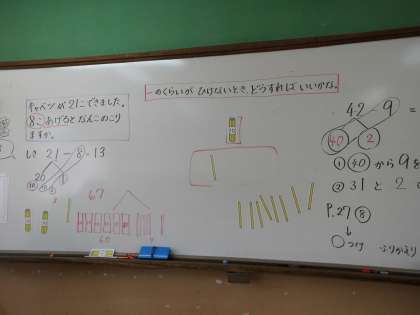 一のくらいが ひけないとき、どうすれば いいかな。
キャベツが21こできました。
8こあげると なんこのこり
ますか。
しき 21-8=13
20 1
67
60
42-9=
40 2
①40から9を
②31と2
P.27 ⑧
↓
○つけ ふりかえり